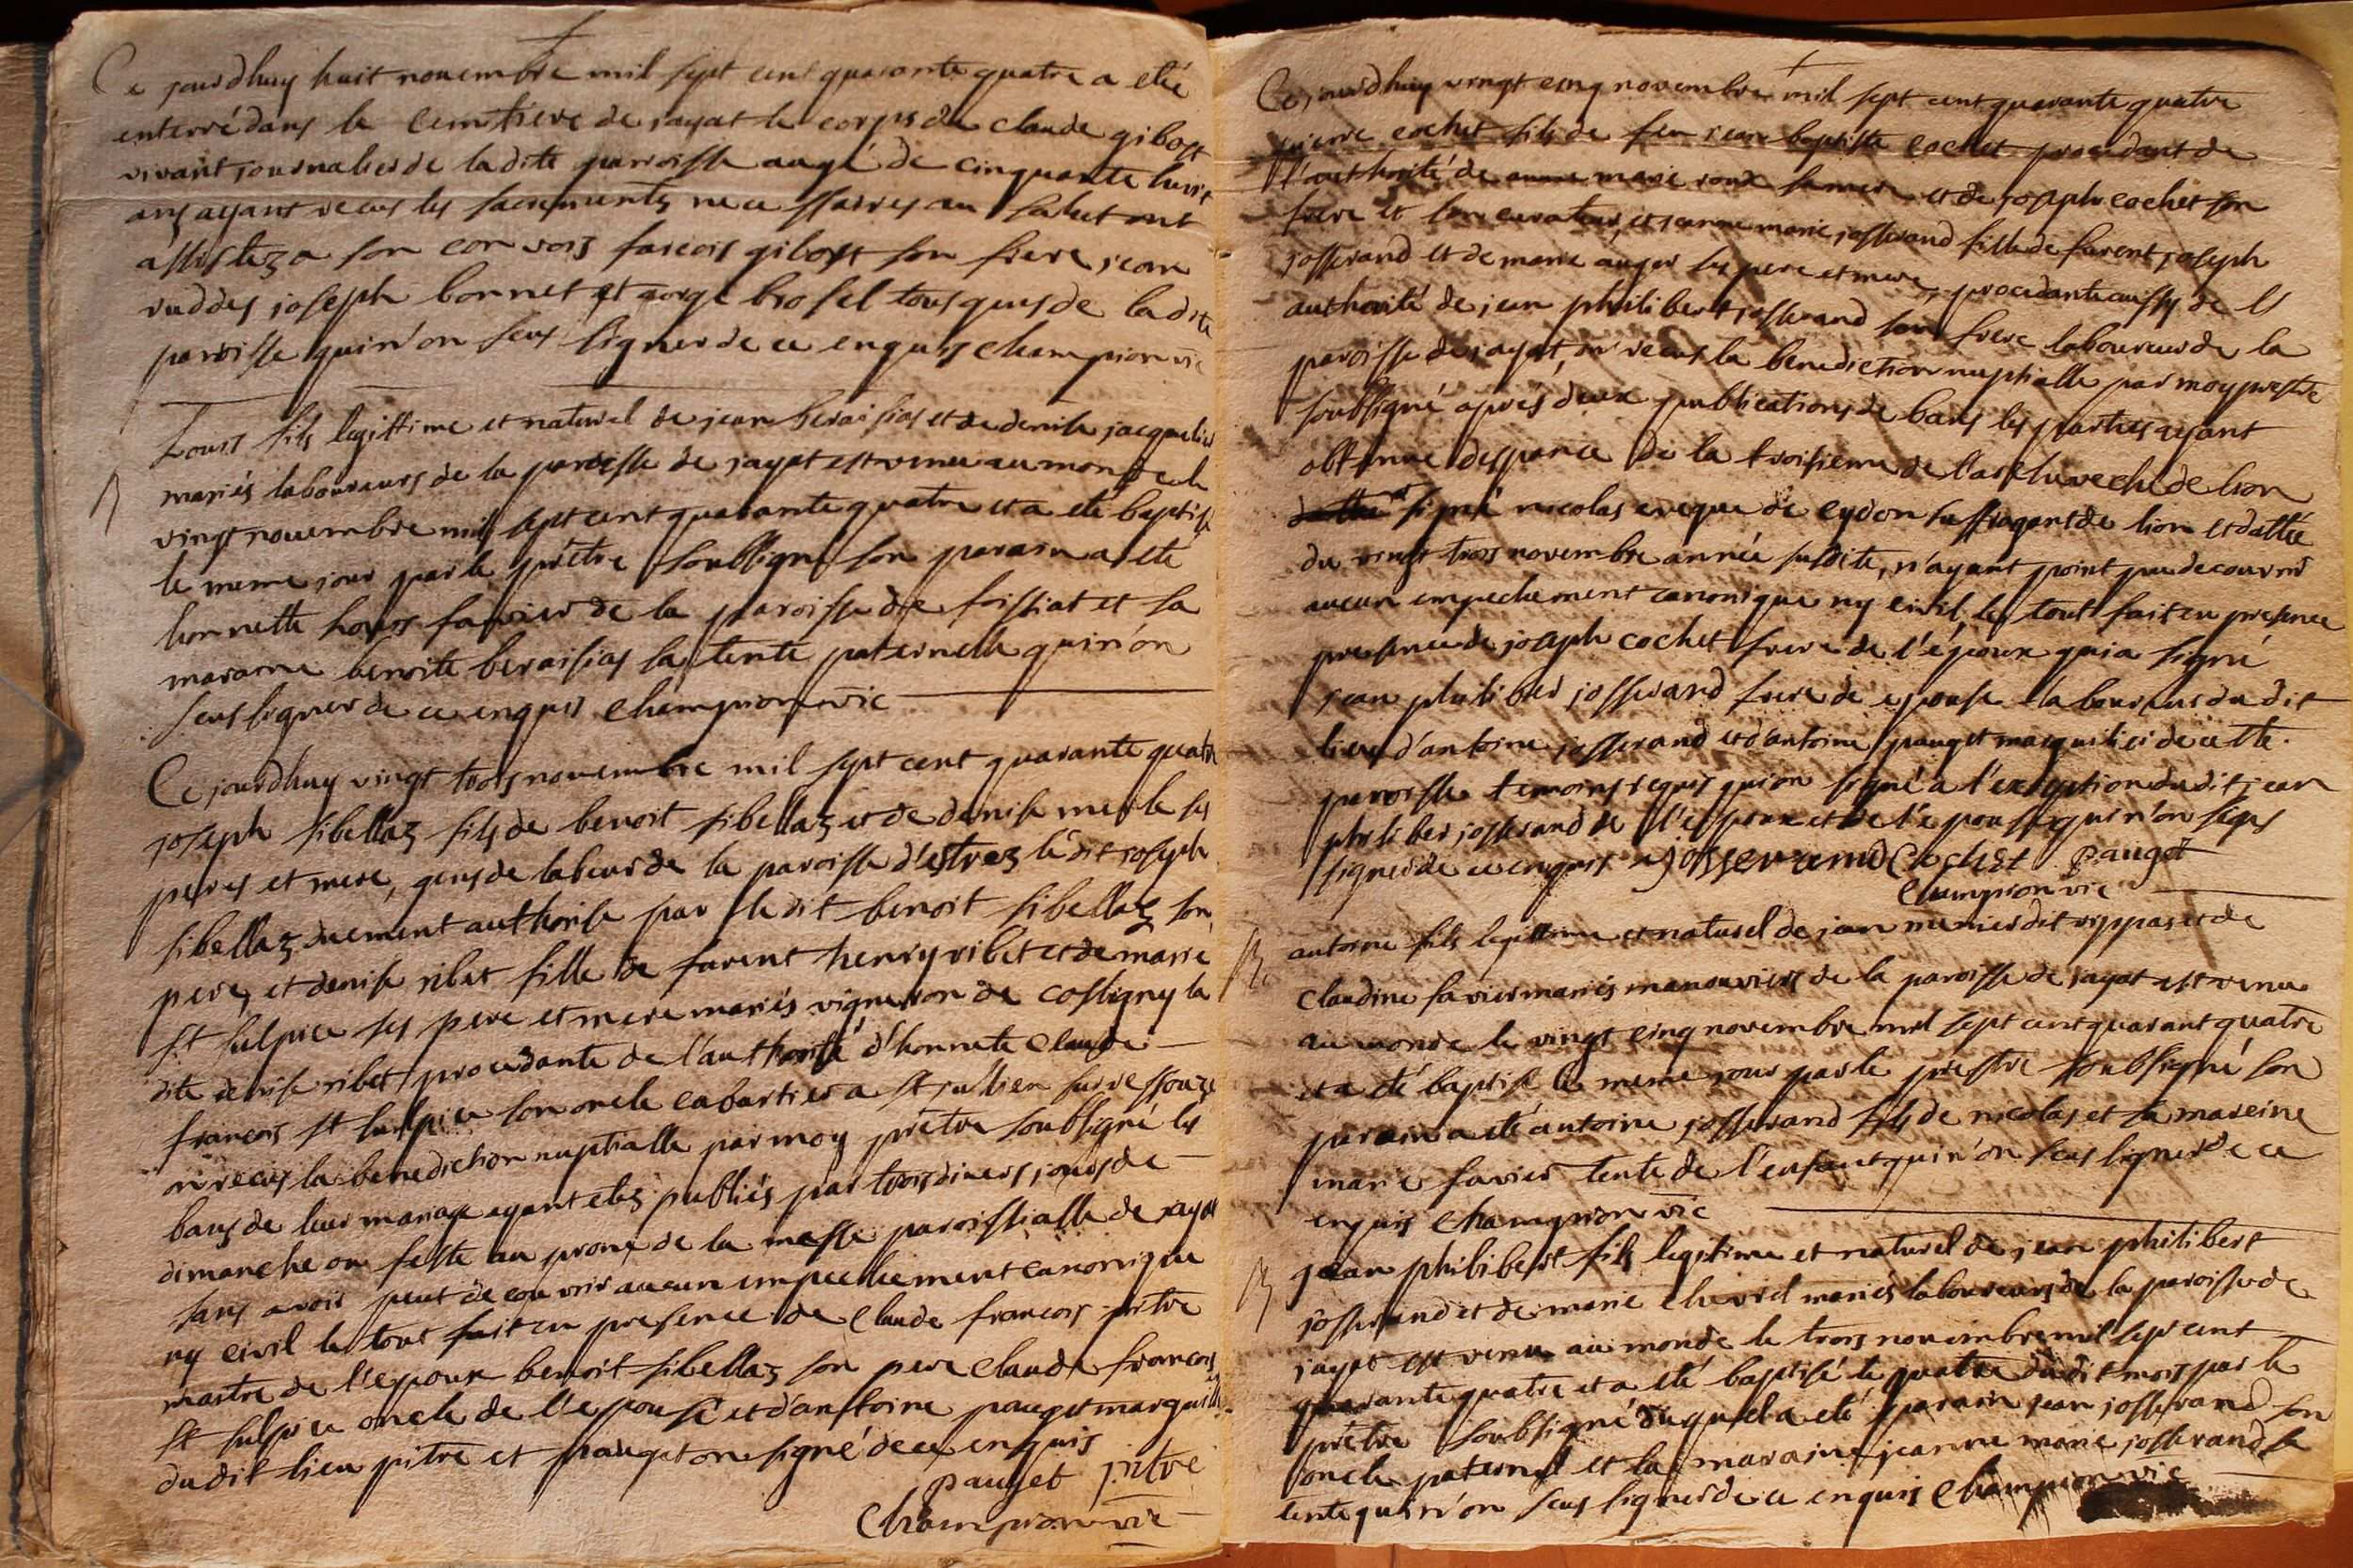 Ce jourdhuy huit nouembre mil sept cent quarante quatre a etté
enterré dans le cemtiere de jayat le corps de claude gibost
vivant journalier de la dite paroisse augé de cinquante huit
ans ayant recus les sacrements necessaires au salut ont
assistez a son convois farcois gibost son frere jean
ruddes joseph bonnet et george brosel tous gens de la dite
paroisse qui n'on seus signer de ce enquis champion vic
Louis fils legittime et naturel de jean beraisias et de denise jacquelin
mariés laboureurs de la paroisse de jayat est venu au monde le
vingt nouembre mil sept cent quarante quatre et a eté baptisé
le meme jour par le prêtre soubsigné son parain a eté
honnette favier de la paroisse de foissiat et sa
maraine benoite beraisias sa tente paternelle qui n'on
seus signer de ce enquis champion vic
Ce jourdhuy vingt trois nouembre mil sept cent quarante quatre
joseph sibellaz fils de benoit sibellaz et de denise merle ses
peres et mere, gens de labeur de la paroisse d'estrez le dit joseph
sibellaz duement authorise par le dit benoit sibellaz son
pere, et denise ribet fille de furent henry ribet et de marie
st sulpice ses pere et mere mariés vigneron de costigny la
dite denise ribet procedante de l'authorité d'honnete claude
francois st sulpice son oncle cabartier a st jullien sur ressouze
on recus la benediction nuptialle par moy prêtre soubsigné les
bans de leur mariage ayant etez publiés par trois divers jours de
dimanche ou feste au prone de la messe paroissialle de jayat
sans avoir peut decouvrir aucun impechement canonique
ny civil le tout fait en presence de claude francois pitre
maitre de l'epoux benoit sibellaz son pere claude francois
st sulpice oncle de l'epouse et d'antoine pauget marguillier
du dit lieu pitre et pauget on signé de ce enquis
pauget pitre
Champion vic
Ce jourdhuy vingt cinq novembre mil sept cent quarante quatre
pierre cochet fils de feu jean baptiste cochet procedant de
l'authorité de marie roux sa mere et de joseph cochet son
frere et son curateur, et jeanne marie josserand fille de furent joseph
josserand et de marie auger ses pere et mere, procedante aussy de l
authorité de jean philibert josserand son frere laboureur de la
paroisse de jayat, on recus la benediction nuptialle par moy prestre
soubsigné après deux publications de bans les parties ayant
obtenue despance de la troisieme de l'archeveché de lion
signé nicolas eveque de eydon suffragant de lion et dattée
du vingt trois novembre année susdite, n'ayant point pu decouvrir
aucun empechement canonique ny civil, le tout fait en presence
presence de joseph cochet frere de l'époux qui a signé
jean philiber josserand frere de epouse laboureur du dit
lieu d'antoine josserand et d'antoine pauget marguilier de cette
paroisse temoins requis qui on signé a l'exception du dit jean
philiber josserand de l'espoux et de l'epouse qui n'on seus
signer de ce enquis josserand Cochet pauget
Champion vic
antoine fils legittime et naturel de jean meunier dit rippas et de
Claudine favier mariés manouvriers de la paroisse de jayat est venu
au monde le vingt cinq novembre mil sept cent quarant quatre
et a eté baptisé le meme jour par le prestre soubsigné son
parain a eté antoine josserand fils de nicolas et sa mareine
marie favier tente de l'enfant qui n'on seus signer de ce
enquis Champion vic
jean philibert fils legitime et naturel de jean philibert
josserand et de marie chevrel mariés laboureurs de la paroisse de
jayat est venu au monde le trois nouembre mil sept cent
quarante quatre et a eté baptisé le quatre du dit mois par le
prêtre soubsigné duquel a eté parain jean josserand son
oncle paternel et sa maraine jeanne marie josserand sa
tente qui n'on seus signer de ce enquis Champion vic